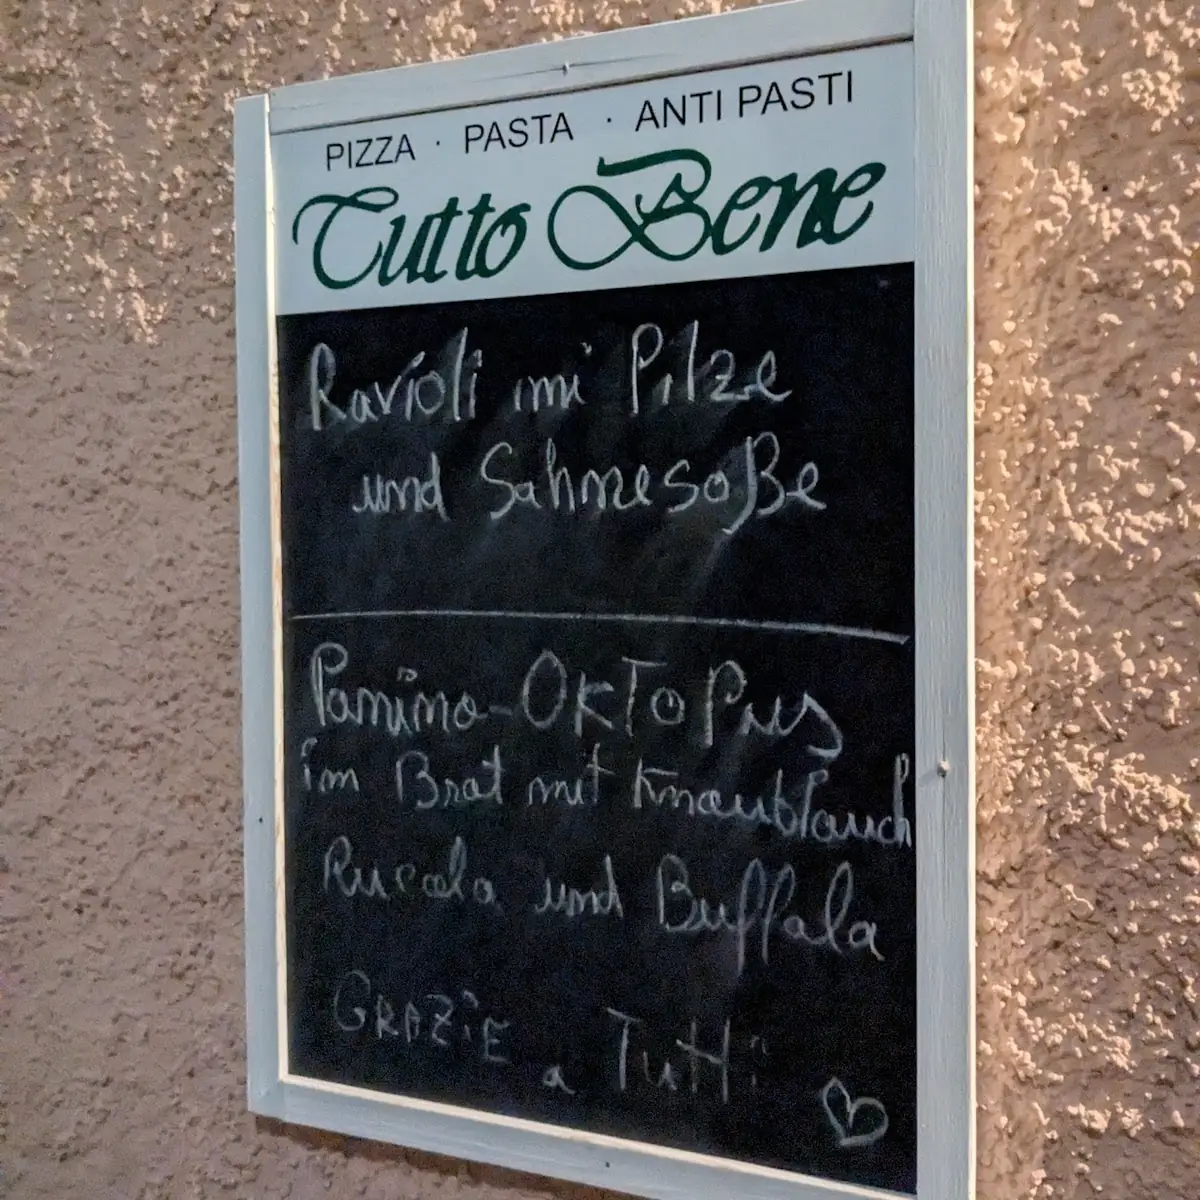 PIZZA · PASTA · ANTI PASTI
Tutto Bene
Ravioli mi Pilze
und Sahnesoße
Panino-OKTOPUS
im Brat mit Knaublauch
Rucola und Buffala
GRAZiE a Tutti